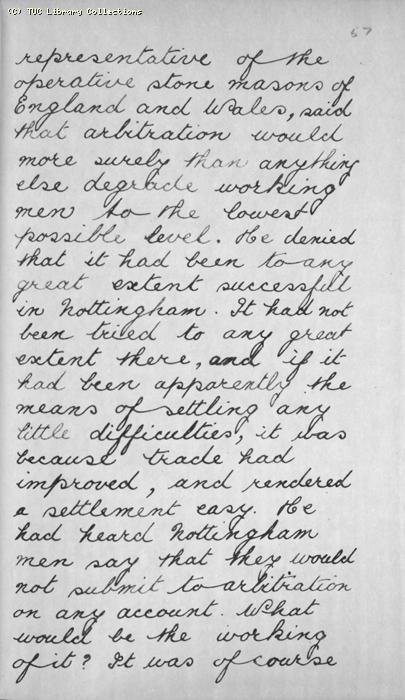 (C) TUC Library Collections
57
representative of the
operative stone masons of
England and Wales, said
that arbitration would
more surely than anything
else degrade working
men to the lowest
possible level. He denied
that it had been to any
great extent successful
in Nottingham. It had not
been tried to any great
extent there, and if it
had been apparently the
means of settling any
little difficulties, it was
because trade had
improved, and rendered
a settlement easy. He
had heard Nottingham
men say that they would
not submit to arbitration
on any account. What
would be the working
of it? It was of course